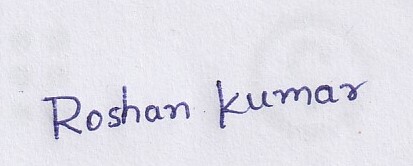 Roshan Kumar